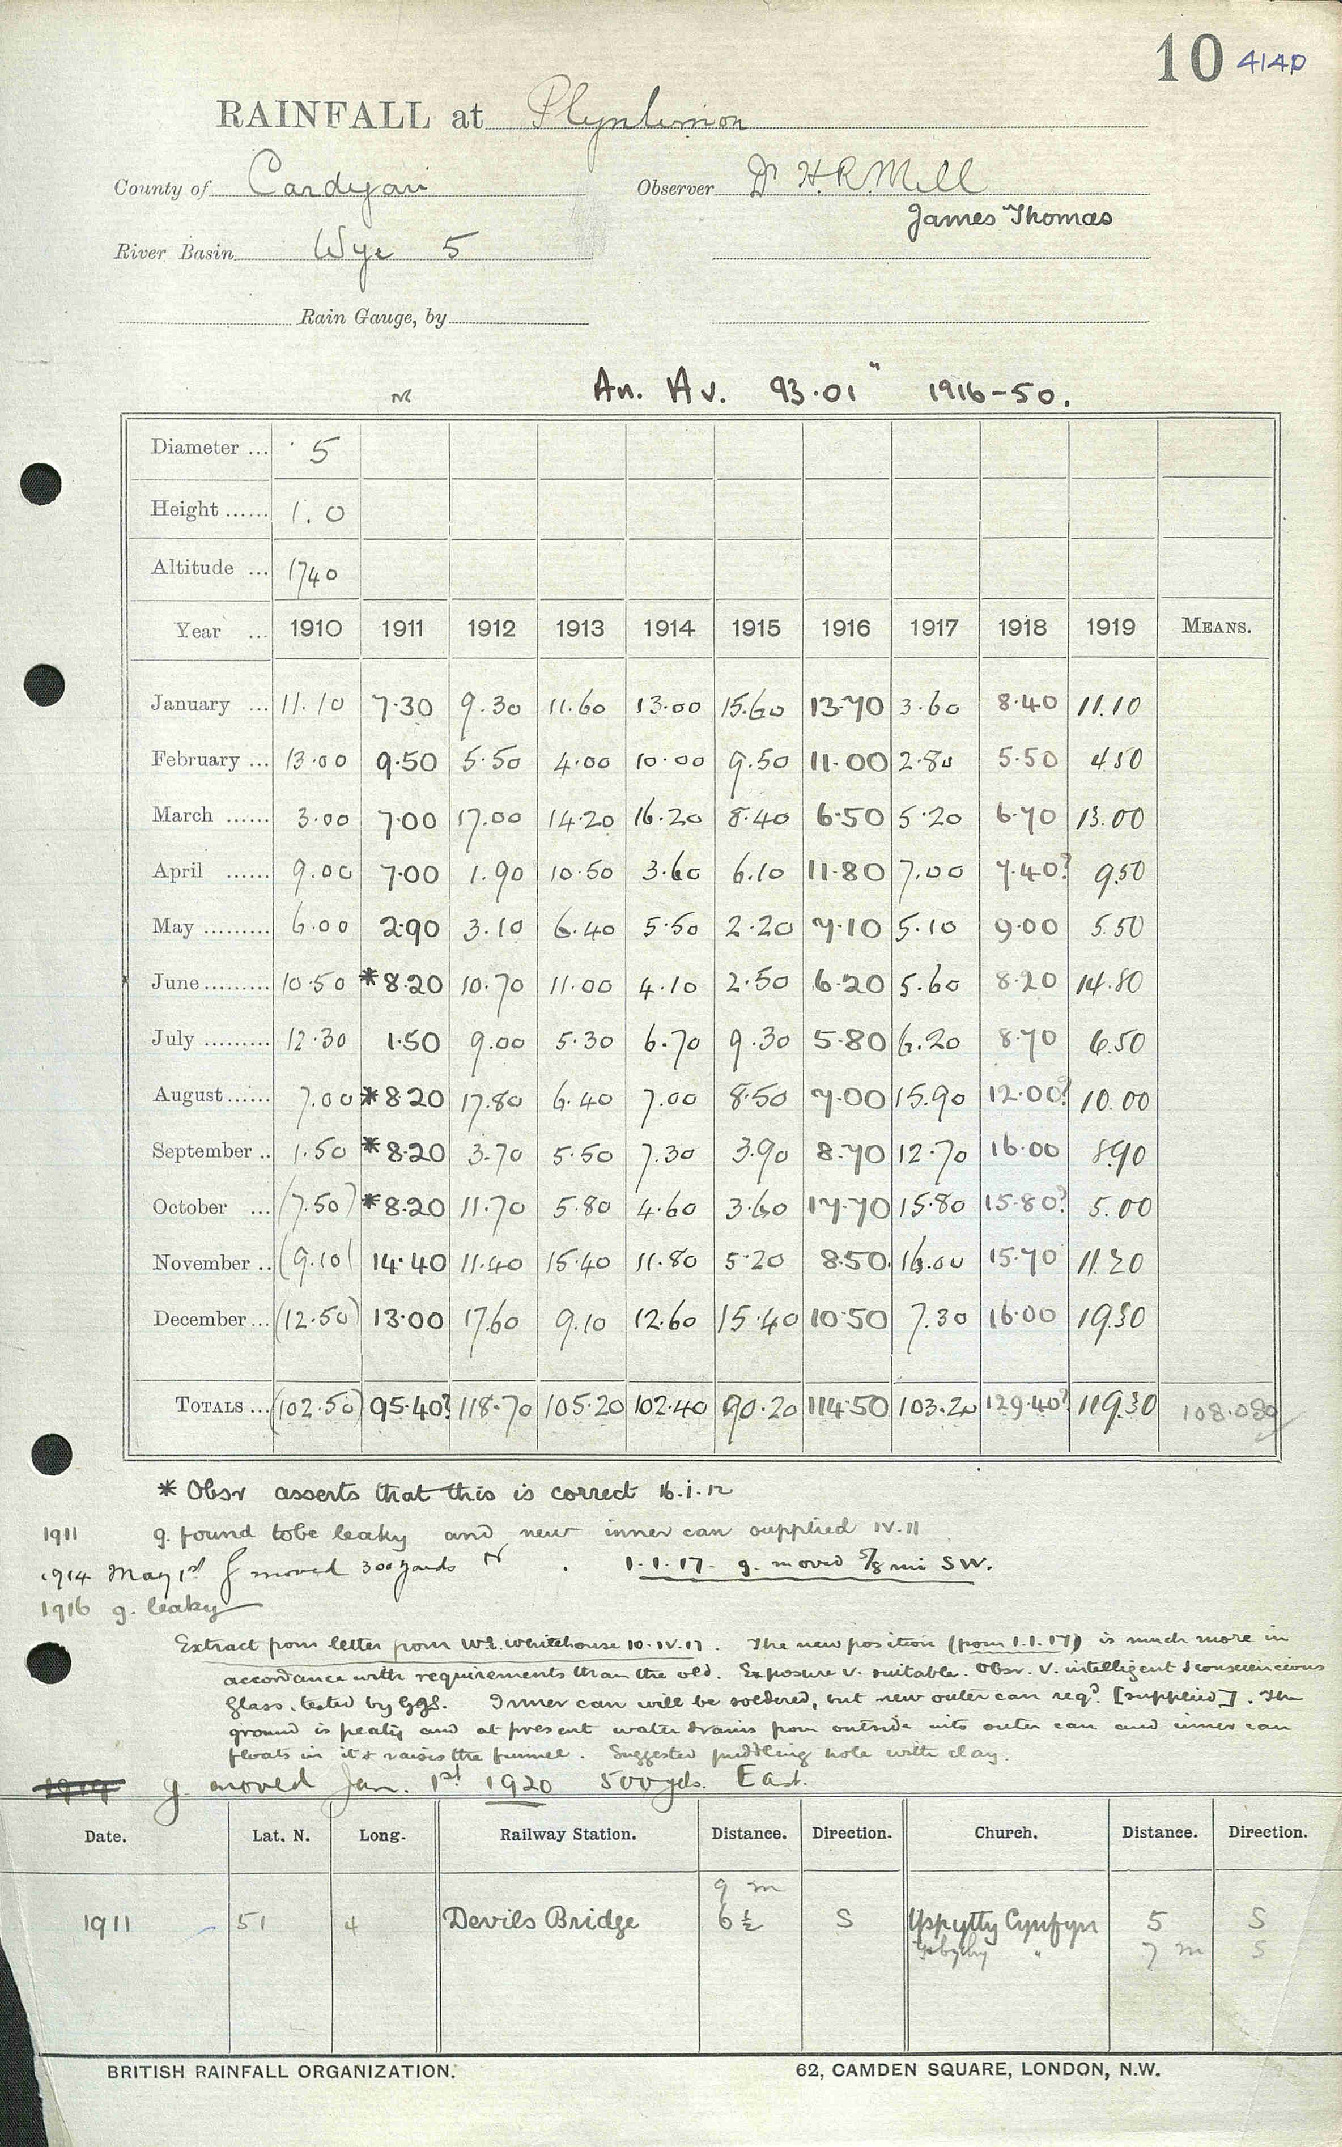 10 414D
RAINFALL at Plynlimon
County of Cardigan Observer Dr H.R.Mill
James Thomas
River Basin Wye 5
Rain Gauge, by
An. Av. 93.01" 1916-50.
Diameter ... 5
Height ...... 1.0
Altitude ... 1740
Year ... 1910 1911 1912 1913 1914 1915 1916 1917 1918 1919 MEANS.
January ... 11.10 7.30 9.30 11.60 13.00 15.60 13.70 3.60 8.40 11.10
February ... 13.00 9.50 5.50 4.00 10.00 9.50 11.00 2.80 5.50 4.50
March ...... 3.00 7.00 17.00 14.20 16.20 8.40 6.50 5.20 6.70 13.00
April ...... 9.00 7.00 1.90 10.50 3.60 6.10 11.80 7.00 7.40? 9.50
May ......... 6.00 2.90 3.10 6.40 5.50 2.20 7.10 5.10 9.00 5.50
June ......... 10.50 *8.20 10.70 11.00 4.10 2.50 6.20 5.60 8.20 14.80
July ......... 12.30 1.50 9.00 5.30 6.70 9.30 5.80 6.20 8.70 6.50
August ...... 7.00 *8.20 17.80 6.40 7.00 8.50 7.00 15.90 12.00? 10.00
September .. 1.50 *8.20 3.70 5.50 7.30 3.90 8.70 12.70 16.00 8.90
October ... (7.50) *8.20 11.70 5.80 4.60 3.60 17.70 15.80 15.80? 5.00
November .. (9.10) 14.40 11.40 15.40 11.80 5.20 8.50 16.00 15.70 11.20
December ... (12.50) 13.00 17.60 9.10 12.60 15.40 10.50 7.30 16.00 19.30
TOTALS ... (102.50) 95.40? 118.70 105.20 102.40 90.20 114.50 103.20 129.40? 119.30 108.080
* Obsr asserts that this is correct 16.i.12
1911 g. found to be leaky and new inner can supplied IV.11
1914 May 1st g moved 300 yards N . 1.1.17- g. moved 5/8 mi SW.
1916 g. leaky
Extract from letter from W.E. Whitehouse 10.IV.17. The new position (from 1.1.17) is much more in
accordance with requirements than the old. Exposure v. suitable. Obsr. v. intelligent & consciencious
Glass. tested by Inner can will be soldered, but new outer can reqd. [supplied]. The
ground is peaty and at present water drains from outside into outer can and inner can
floats in it & raises the funnel. Suggested puddling hole with clay.
1919 g. moved Jan. 1st 1920 500 yds. East.
Date. Lat. N. Long. Railway Station. Distance. Direction. Church. Distance. Direction.
9 m
1911 51 4 Devils Bridge 6½ S Yspytty Cynfyn 5 S
" 7 m S
BRITISH RAINFALL ORGANIZATION. 62, CAMDEN SQUARE, LONDON, N.W.